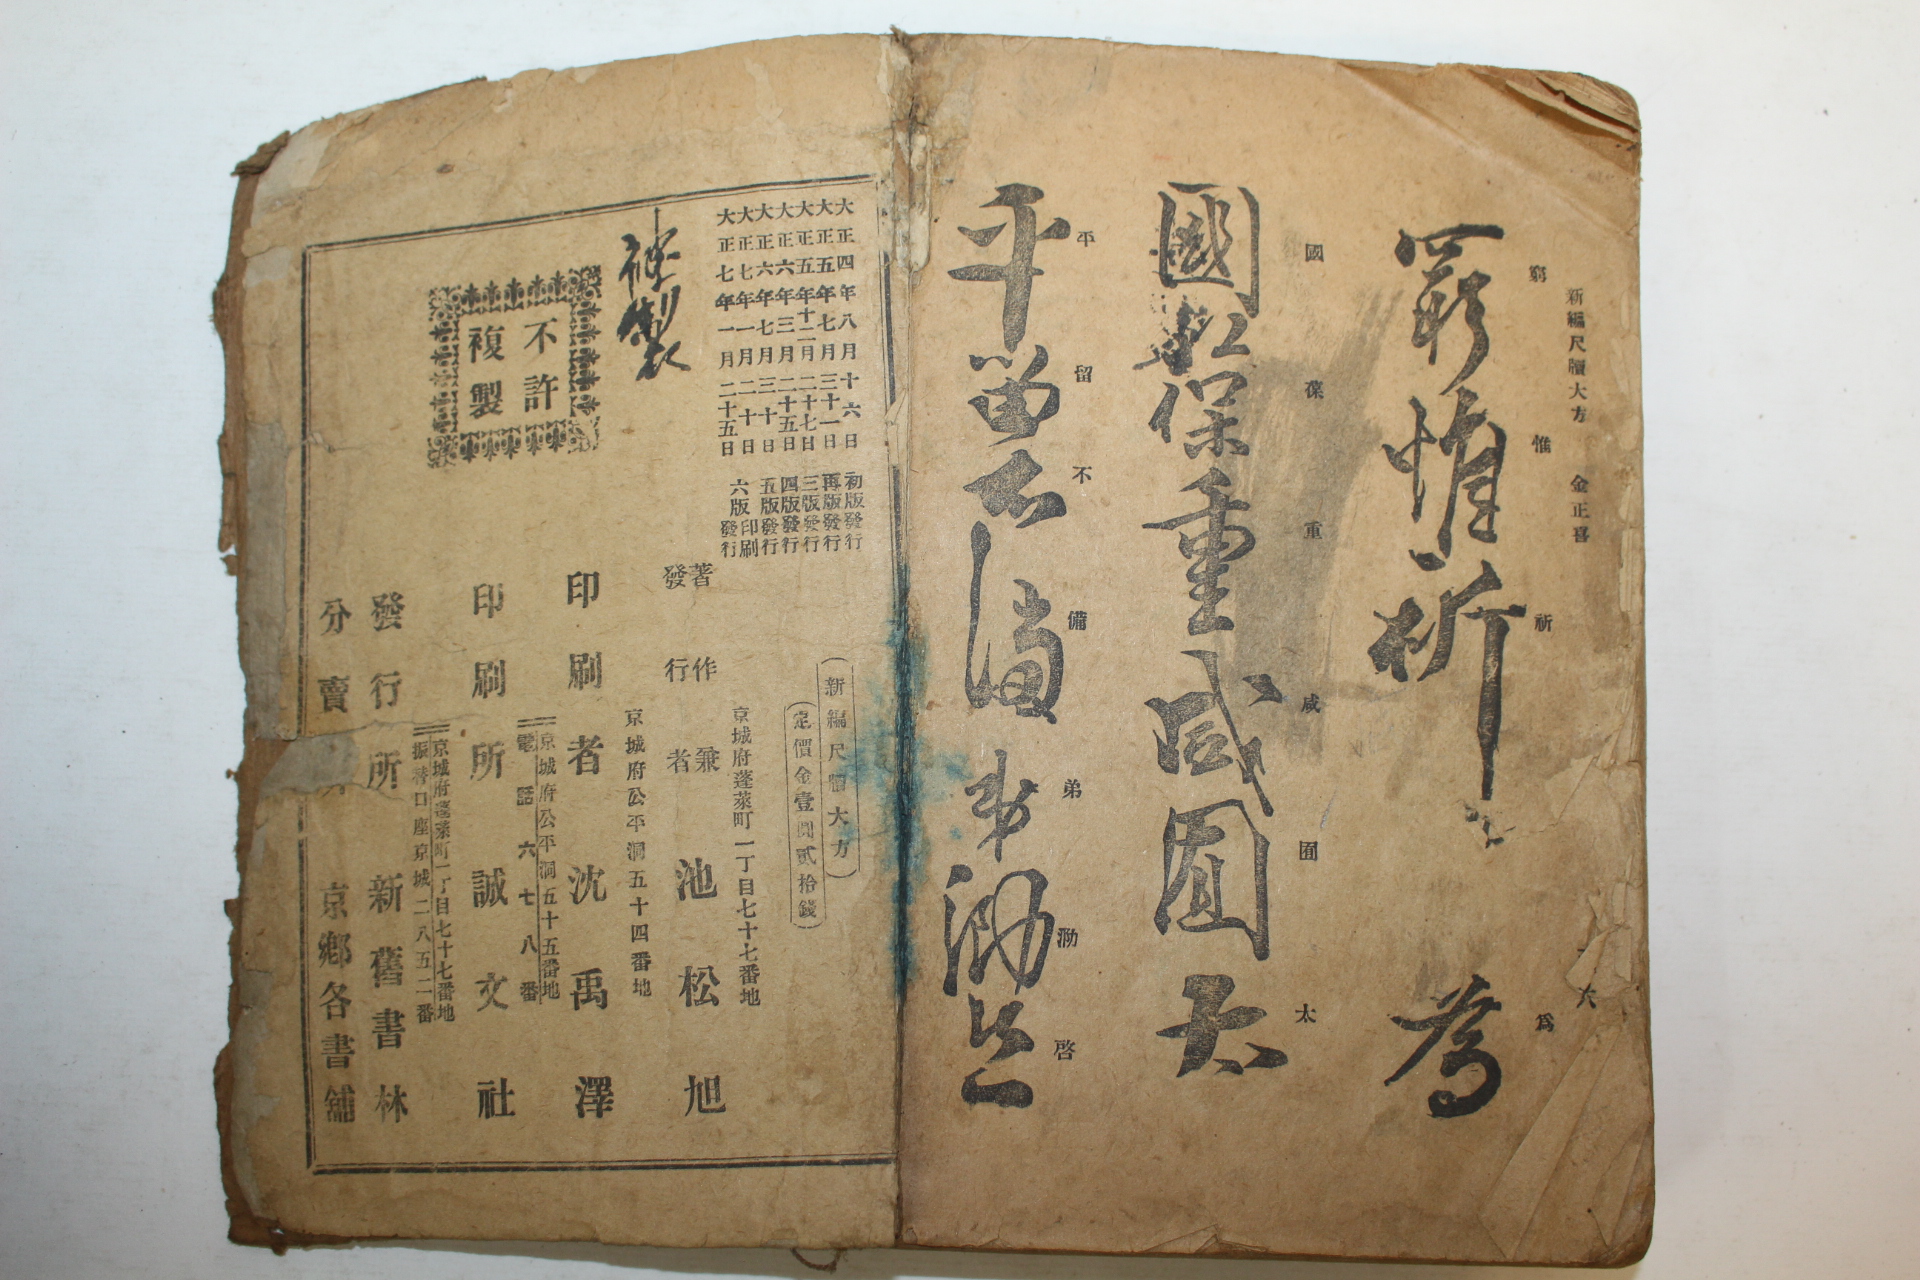 新編尺牘大方 金正喜
十六
窮 惟 祈 爲
窮惟祈 爲
國 保 重 咸 囿 太
國 保重咸囿太
平 留 不 備 弟 泐 啓
平留不備弟泐啓
大正四年八月十六日 初版發行
大正五年七月三十一日 再版發行
大正五年十二月二十七日 三版發行
大正六年三月二十五日 四版發行
大正六年七月三十日 五版發行
大正七年一月二十日 六版印刷
大正七年一月二十五日 六版發行
複製
不許
複製
(新編尺牘大方)
(定價金壹圓貳拾錢)
京城府蓬萊町一丁目七十七番地
著作兼
發行者 池松旭
京城府公平洞五十四番地
印刷者 沈禹澤
京城府公平洞五十五番地
電話六七八番
印刷所 誠文社
京城府蓬萊町一丁目七十七番地
振替口座京城二八五二番
發行所 新舊書林
分賣 京鄉各書舖